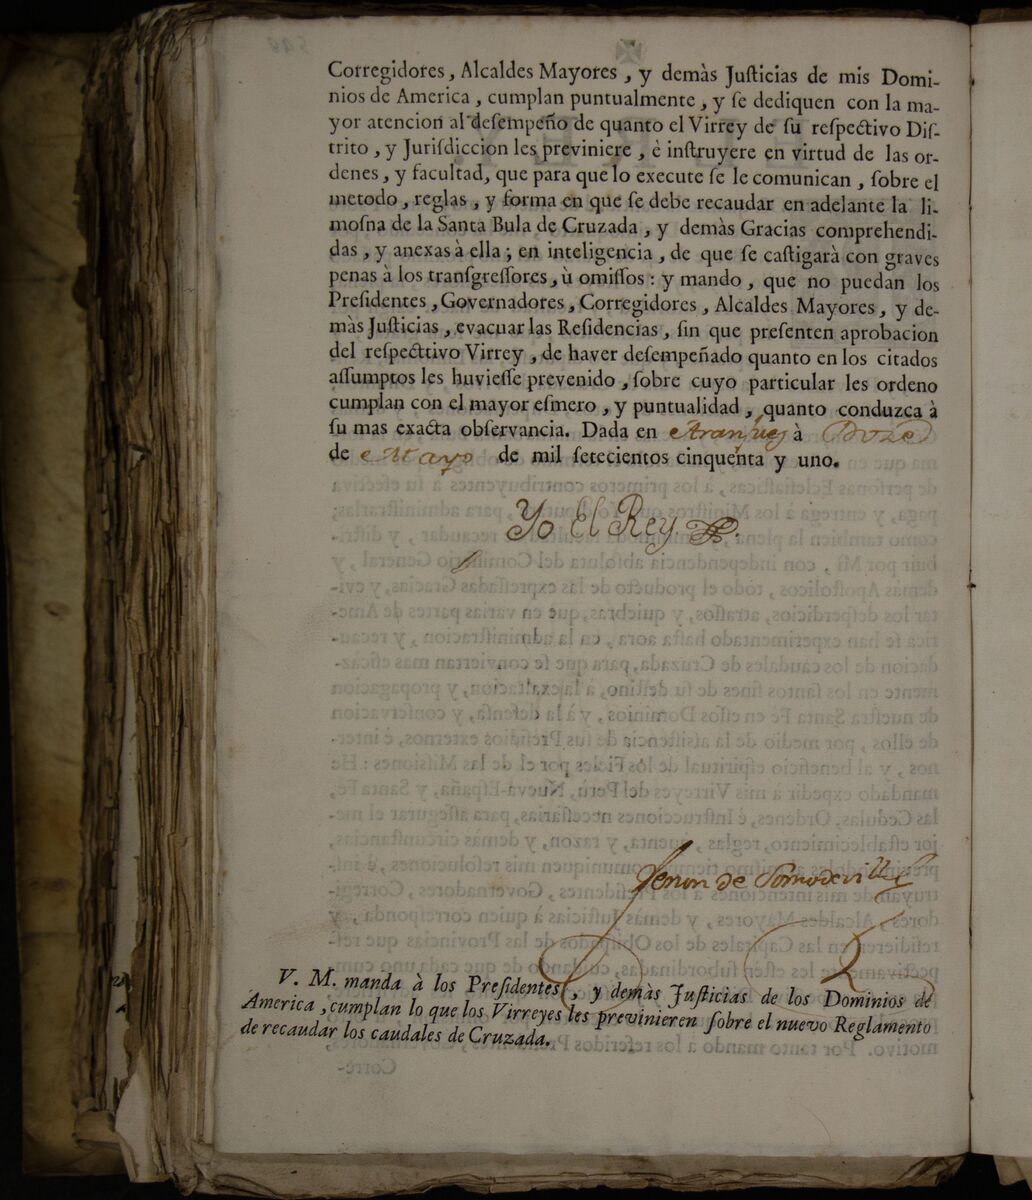 Corregidores, Alcaldes Mayores, y demàs Juſticias de mis Domi-
nios de America, cumplan puntualmente, y ſe dediquen con la ma-
yor atencion al deſempeño de quanto el Virrey de ſu reſpectivo Diſ-
trito, y Juriſdiccion les previniere, è inſtruyere en virtud de las or-
denes, y facultad, que para que lo execute ſe le comunican, ſobre el
metodo, reglas, y forma en que ſe debe recaudar en adelante la li-
moſna de la Santa Bula de Cruzada, y demàs Gracias comprehendi-
das, y anexas à ella; en inteligencia, de que ſe caſtigarà con graves
penas à los tranſgreſſores, ù omiſſos: y mando, que no puedan los
Preſidentes, Governadores, Corregidores, Alcaldes Mayores, y de-
màs Juſticias, evacuar las Reſidencias, ſin que preſenten aprobacion
del reſpecttivo Virrey, de haver deſempeñado quanto en los citados
aſſumptos les huvieſſe prevenido, ſobre cuyo particular les ordeno
cumplan con el mayor eſmero, y puntualidad, quanto conduzca à
ſu mas exacta obſervancia. Dada en Aranjuez à Doze
de Mayo de mil ſetecientos cinquenta y uno.
Yo El Rey
Zenon de Somodevilla
V. M. manda à los Preſidentes, y demàs Juſticias de los Dominios de
America, cumplan lo que los Virreyes les previnieren ſobre el nuevo Reglamento
de recaudar los caudales de Cruzada.